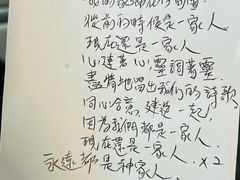 從前的時候是一家人
現在還是一家人
心連著心，靈調著靈
盡情地唱出我們的詩歌
同心合意，建造一起，
因為我們都是一家人
現在還是一家人
永遠都是神家人 x2